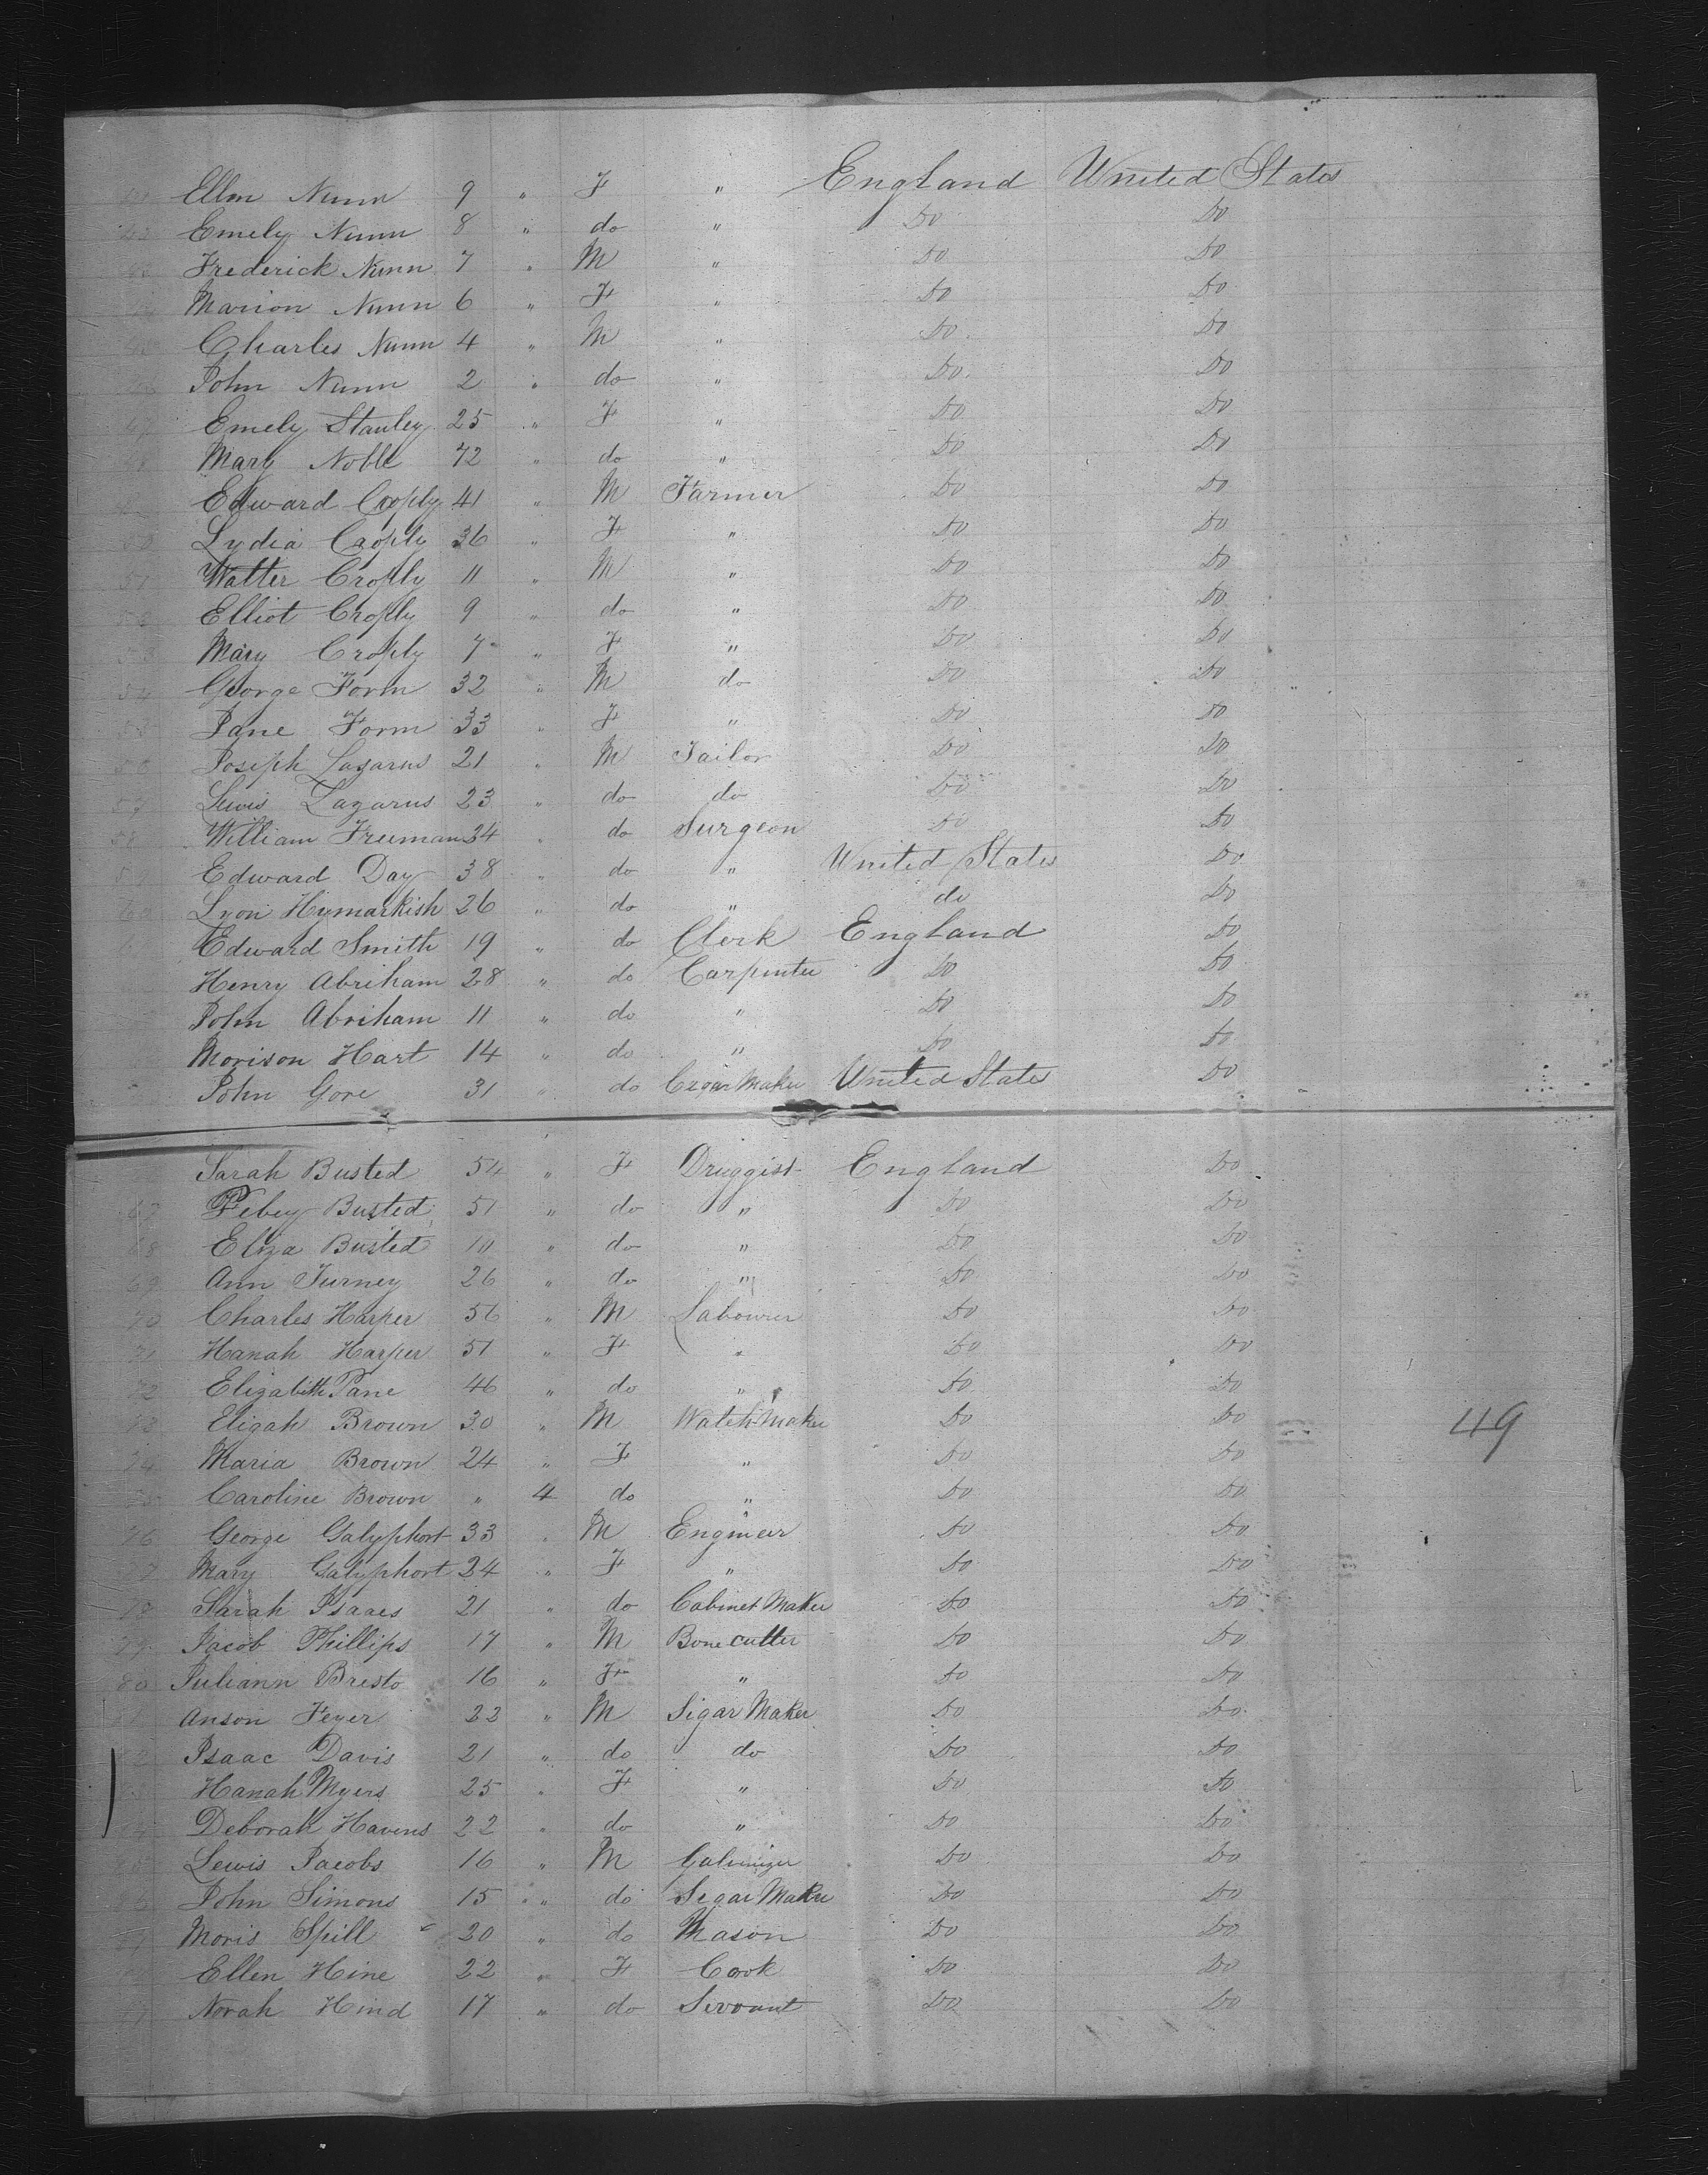 Ellen Nunn 9 " F " England United States
43 Emely Nunn 8 " do " Do Do
Frederick Nunn 7 " M " Do Do
Marion Nunn 6 " F " Do Do
Charles Nunn 4 " M " Do Do
John Nunn 2 " do " Do Do
47 Emely Stanley 25 " F " Do Do
Mary Noble 42 " do " Do Do
Edward Croply 41 " M Farmer Do Do
50 Lydia Croply 36 " F " Do Do
51 Walter Croply 11 " M " Do Do
52 Elliot Croply 9 " do " Do Do
53 Mary Croply 7 " F " Do Do
54 George Form 32 " M do Do Do
55 Jane Form 33 " F " Do Do
56 Joseph Lazarus 21 " M Tailor Do Do
57 Lewis Lazarus 23 " do do Do Do
58 William Freeman 34 " do Surgeon Do Do
59 Edward Day 38 " do " United States Do
60 Lyon Hymarkish 26 " do " do Do
Edward Smith 19 " do Clerk England Do
Henry Abriham 28 " do Carpinter Do Do
John Abriham 11 " do " Do Do
Morison Hart 14 " do " Do Do
John Gore 31 " do Cegar Maker United States Do
Sarah Busted 54 " F Druggist England Do
67 Febey Busted 51 " do " Do Do
68 Eliza Busted 11 " do " Do Do
69 Ann Turney 26 " do " Do Do
70 Charles Harper 56 " M Labourer Do Do
71 Hanah Harper 51 " F " Do Do
72 Elizabith Pane 46 " do " Do Do
73 Eligah Brown 30 " M Watch Maker Do Do
74 Maria Brown 24 " F " Do Do
75 Caroline Brown " 4 do " Do Do
76 George Galyphort 33 " M Engineer Do Do
77 Mary Galyphort 24 " F " Do Do
78 Sarah Isaacs 21 " do Cabinet Maker Do Do
79 Jacob Phillips 17 " M Bone cutter Do Do
80 Juliann Bristo 16 " F " Do Do
Anson Feyer 22 " M Sigar Maker Do Do
82 Isaac Davis 21 " do do Do Do
Hanah Myers 25 " F " Do Do
Deborah Havens 22 " do " Do Do
85 Lewis Jacobs 16 " M Do Do
John Simons 15 " do Segar Maker Do Do
Moris Spill 20 " do Mason Do Do
Ellen Hine 22 " F Cook Do Do
Norah Hind 17 " do Servant Do Do
49